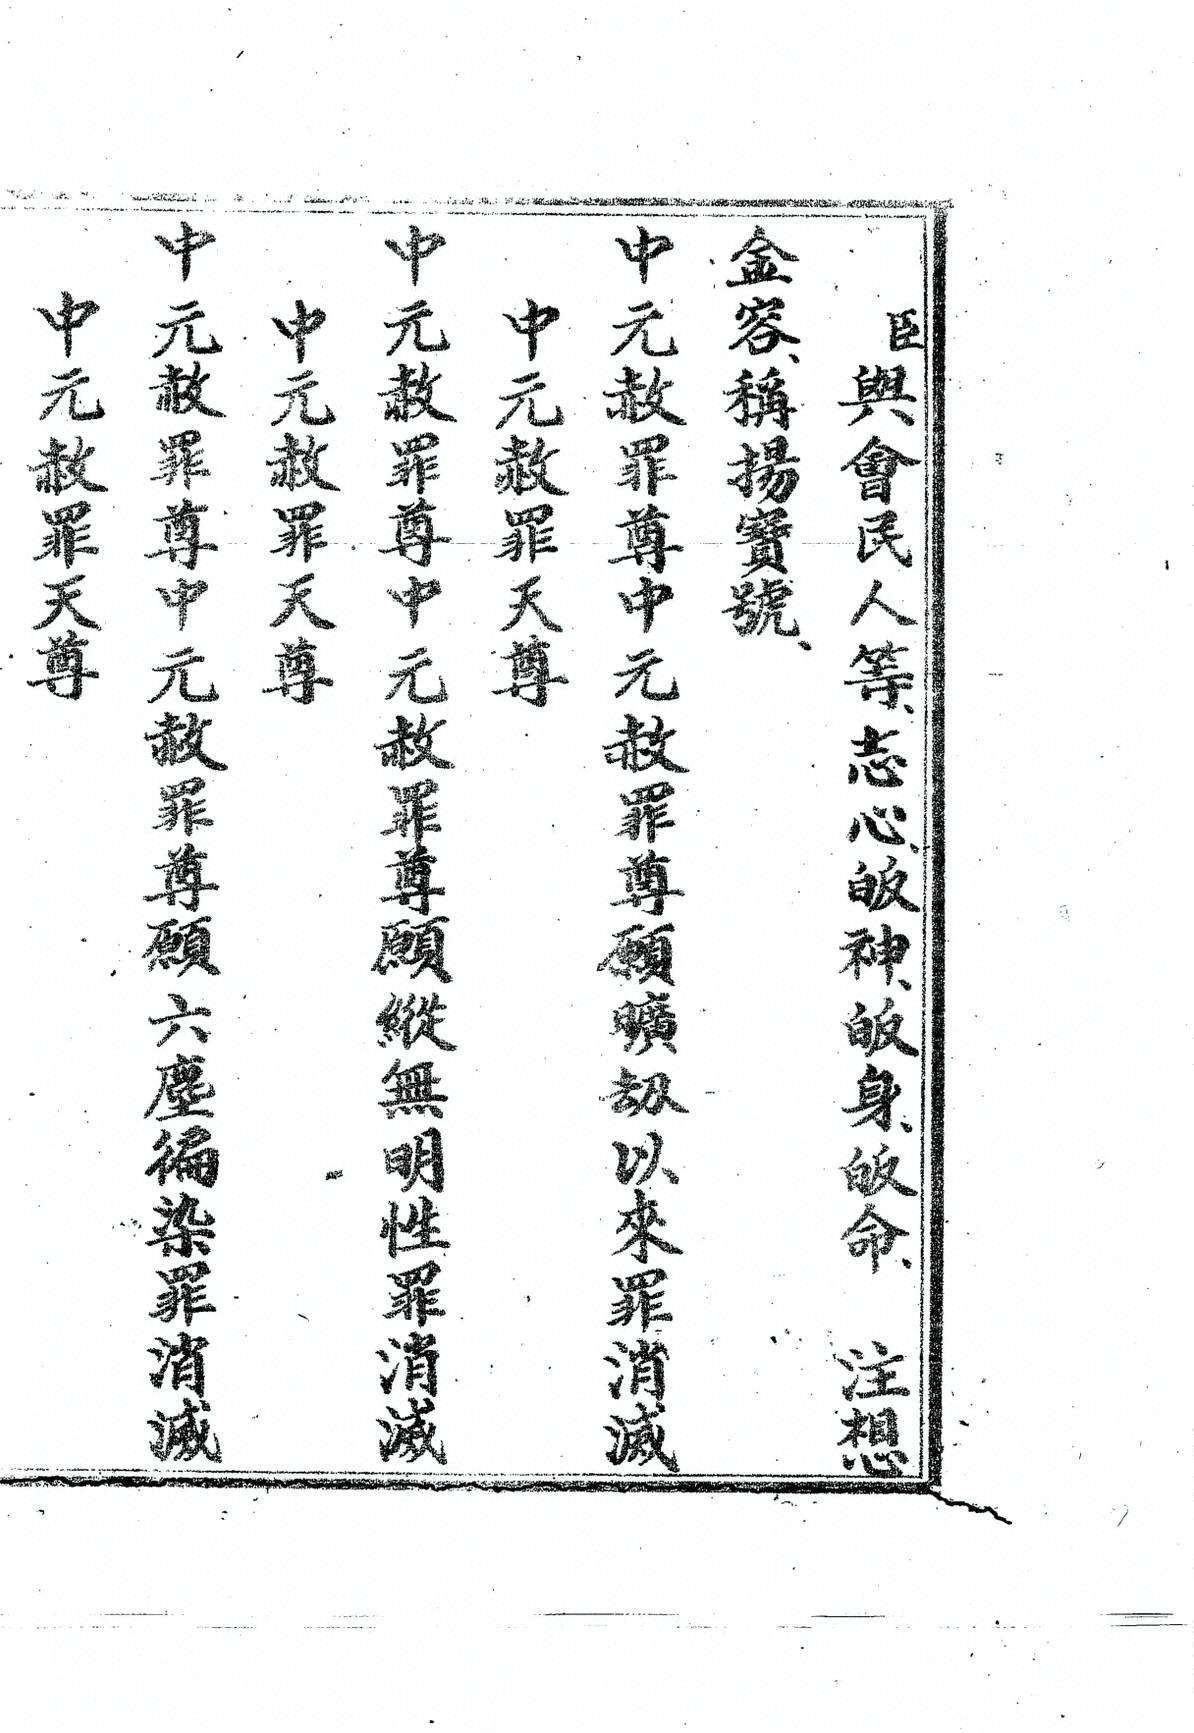 臣與會民人等、志心、皈神、皈身、皈命、注想
金容、稱揚寶號、
中元赦罪尊中元赦罪尊願曠劫以來罪消滅
中元赦罪天尊
中元赦罪尊中元赦罪尊願縱無明性罪消滅
中元赦罪天尊
中元赦罪尊中元赦罪尊願六塵徧染罪消滅
中元赦罪天尊